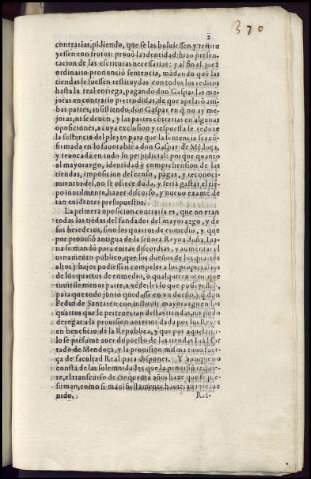 2
370
contrarias, pidiendo, que se las boluiessen, y
y essen con frutos: prouò la identidad: hizo presen-
tacion de las escrituras necessarias: y al fin el juez
ordinario pronunciò sentencia, mãdando que las
tiendas le fuessen restituydas con todos los reditos
hasta la real entrega, pagando don Gaspar las me-
joras en contrario pretendidas, de que apelarõ am-
bas partes, insistiendo, don Gaspar en q̃ no ay me-
joras, ni se deuen, y las partes contrarias en algunas
oposiciones, a cuya exclusion y respuesta se reduce
la sustancia del pleyto para que la sentencia sea con-
firmada en lo fauorable a don Gaspar de Mẽdoça,
y reuocada en todo lo perjudicial: porque quanto
al mayorazgo, identidad y comprehension de las
tiendas, imposicion del censo, pagas, y reconoci-
mientos del, no se ofrece duda, y seria gastar el tiẽ-
po inutilmente, hazer discurso, y nueuo examẽ de
tan euidentes presupuestos.
La primera oposicion contraria es, que no eran
todas las tiẽdas del fundador del mayorazgo, y de
sus herederos, sino los quartos de enmedio, y que
por prouision antigua de la señora Reyna doña Iua-
na se mandò para euitar discordias, y aumentar el
ornamento publico, que los dueños de los quartos
altos, y baxos pudiessen compeler a los propietarios
de los quartos de enmedio, o qualquiera en que
tuuiessen menor parte, a vẽderles lo que posseian,
para que todo junto quedasse en vn dueño, y q̃ don
Pedro de constituir mayorazgo en los
quartos que le pertenecian de estas tiendas, no pudo
derogar a la prouision concedida por los Reyes
en beneficio de la Republica, y que por aquel titu-
lo se presume auer depuesto de las tiendas el
rado de Mendoça, y la prouision misma tuuo fuer-
ça de facultad Real para disponer. Y aunque no
consta de las solemnidades que la prouision requie-
re, el transcurso de cinquenta años haze que se pre-
suman, como si mas bastantemente huuieran interue-
nido.